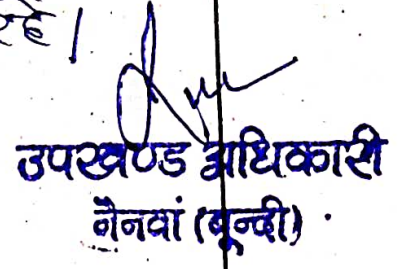 रहे।
उपखण्ड अधिकारी
नैनवां (बून्दी)